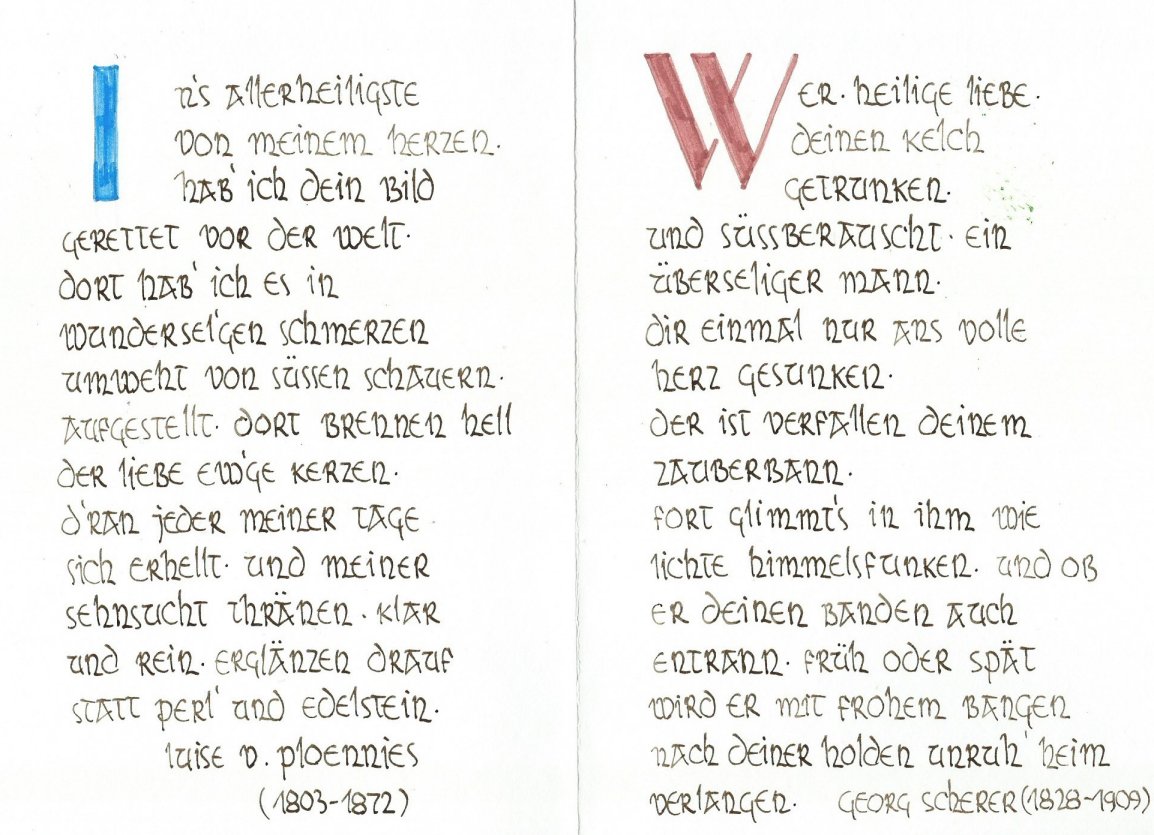 Ins Allerheiligste
von meinem Herzen.
hab' ich dein Bild
gerettet vor der Welt.
dort hab' ich es in
wundersel'gen Schmerzen
umweht von süssen Schauern.
aufgestellt. dort brennen hell
der Liebe ew'ge Kerzen.
d'ran jeder meiner Tage
sich erhellt. und meiner
Sehnsucht Thränen. klar
und rein. erglänzen drauf
statt Perl' und Edelstein.
Luise v. Ploennies
(1803-1872)
Wer. heilige Liebe.
deinen Kelch
getrunken.
und süssberauscht. ein
überseliger Mann.
dir einmal nur ans volle
Herz gesunken.
der ist verfallen deinem
Zauberbann.
fort glimmt's in ihm wie
lichte Himmelsfunken. und ob
er deinen Banden auch
entrann. früh oder spät
wird er mit frohem Bangen
nach deiner holden Unruh' heim
verlangen. Georg Scherer (1828-1909)